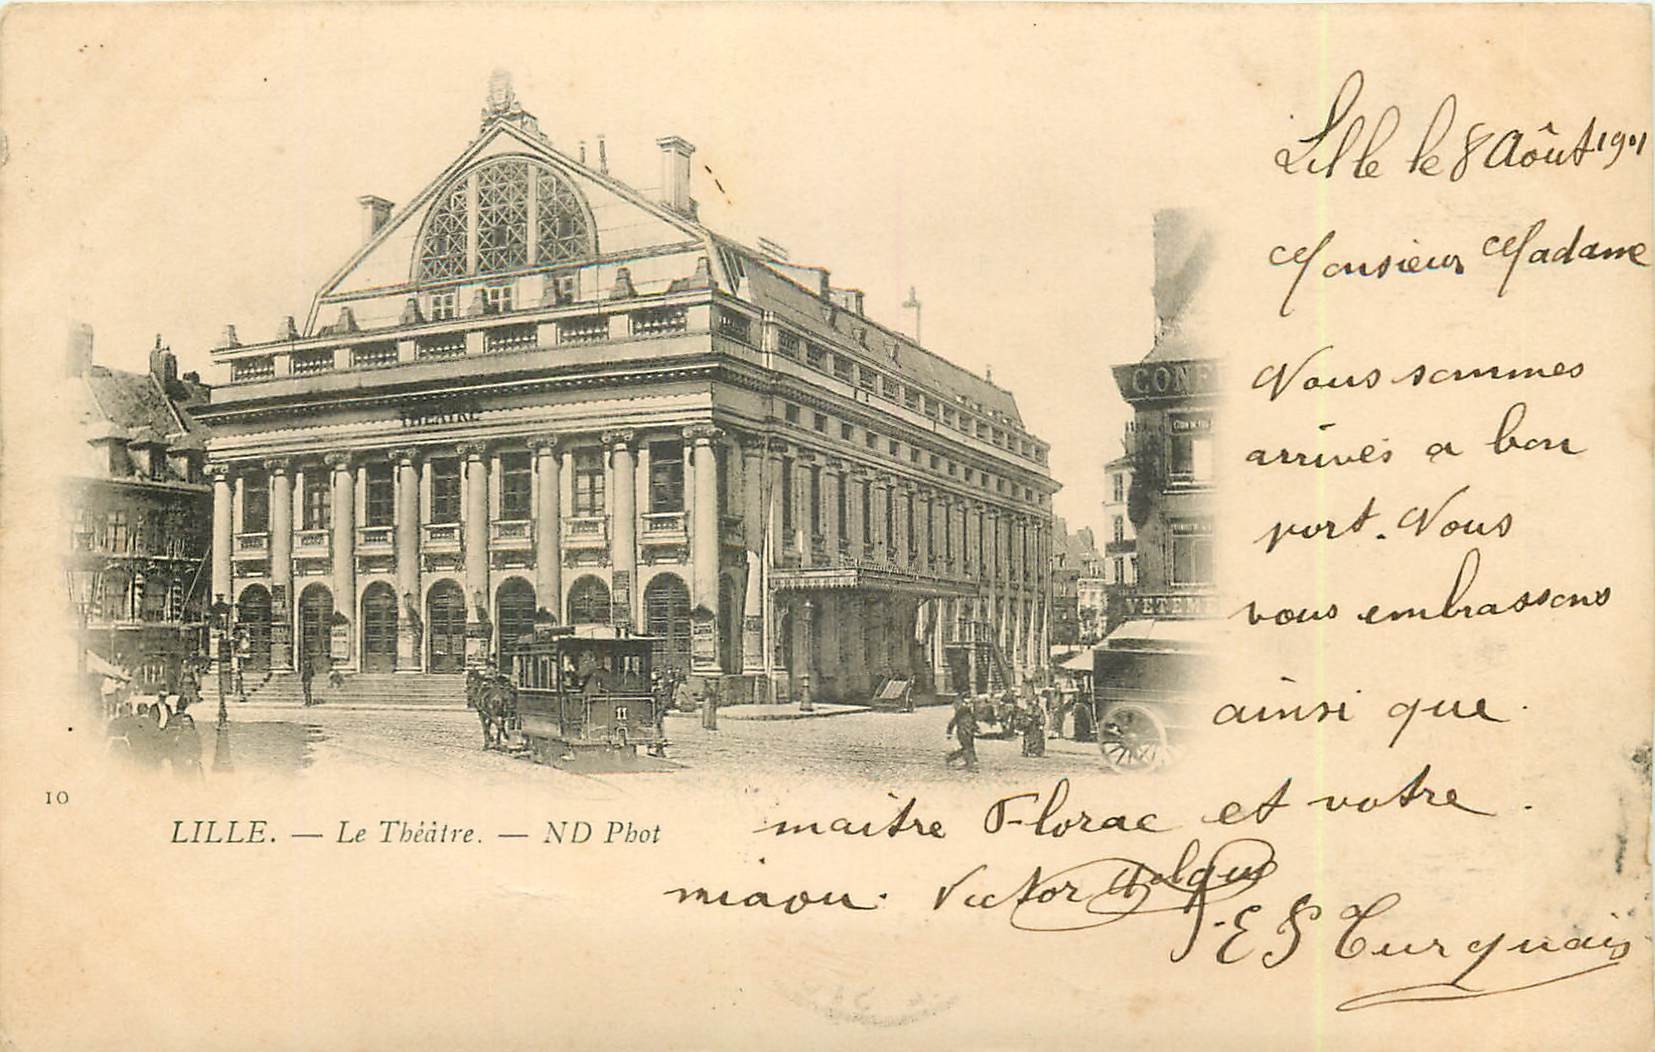 Lille le 8 Août 1901
Monsieur Madame
Nous sommes
arrivés a bon
port. Nous
vous embrassons
ainsi que
maitre Florac et votre
miaou. Victor
E Turquais
THEATRE
CONF
VETEME
11
10
LILLE. — Le Théâtre. — ND Phot